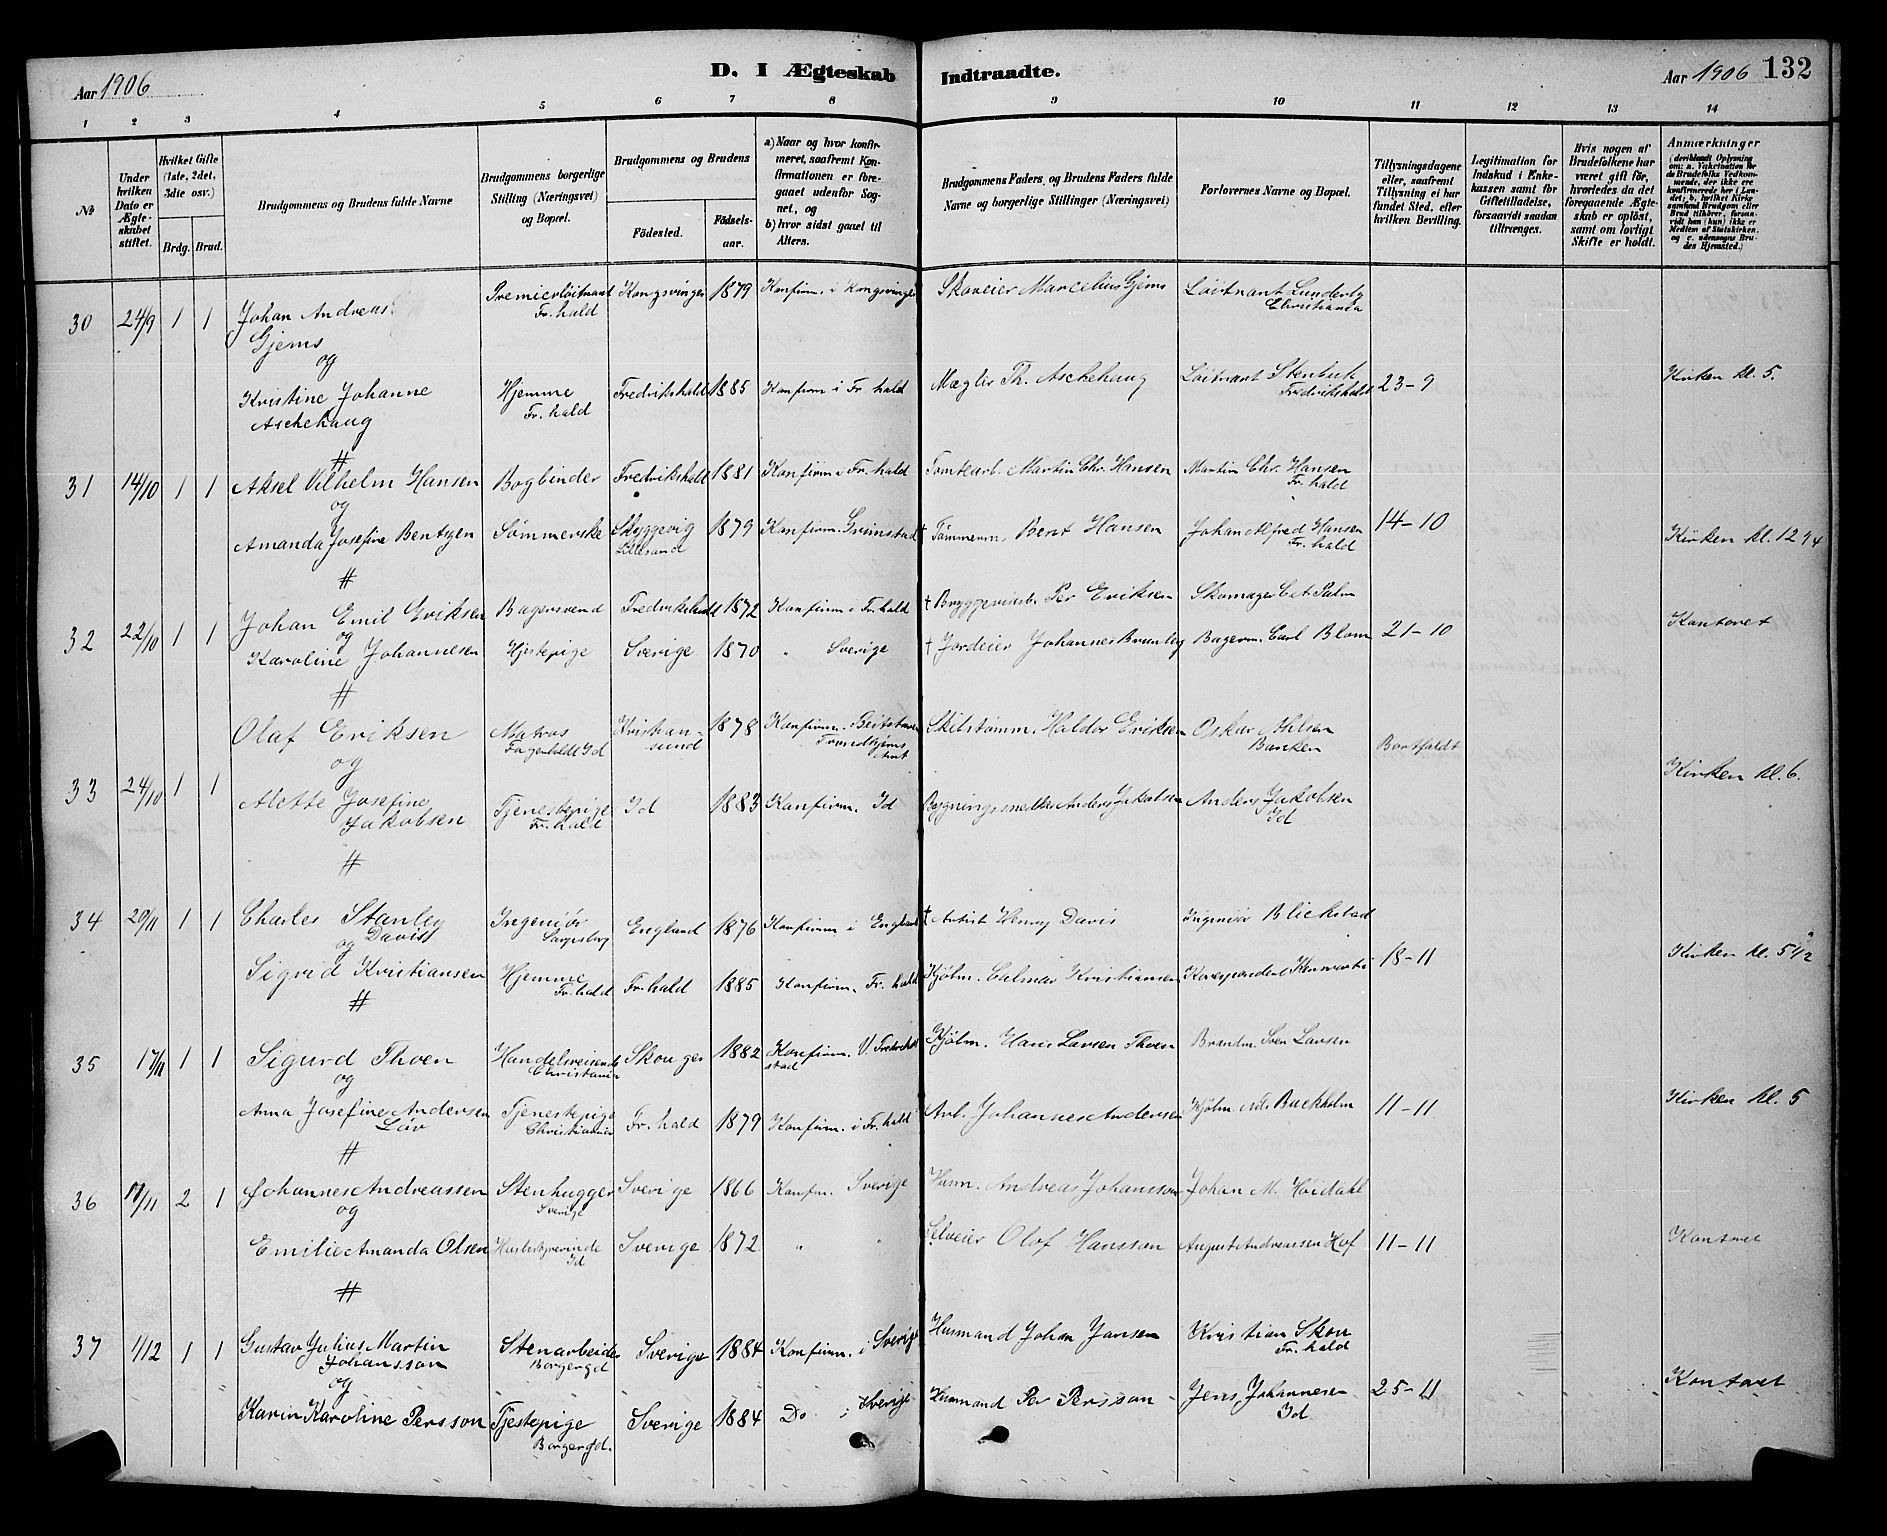 Aar 1906
D. I Ægteskab
Indtraadte.
Aar 1906
132
1 2 3 4 5 6 7 8 9 10 11 12 13 14
№
Under hvilken Dato er Ægteskabet stiftet.
Hvilket Gifte (1ste, 2det, 3die osv.)
Brdg. Brud.
Brudgommens og Brudens fulde Navne
Brudgommens borgerlige Stilling (Næringsvei) og Bopæl.
Brudgommens og Brudens
Fødested.
Fødselsaar.
a) Naar og hvor konfirmeret, saafremt Konfirmationen er foregaaet udenfor Sognet, og
b) hvor sidst gaaet til Alters.
Brudgommens Faders og Brudens Faders fulde Navne og borgerlige Stillinger (Næringsvei)
Forlovernes Navne og Bopæl.
Tillysningsdagene eller, saafremt Tillysning ei har fundet Sted, efter hvilken Bevilling.
Legitimation for Indskud i Enkekassen samt for Giftetilladelse, forsaavidt saadan tiltrænges.
Hvis nogen af Brudefolkene har været gift før, hvorledes da det foregaaende Ægteskab er opløst, samt om lovligt Skifte er holdt.
Anmærkninger
30 24/9 1 1 Johan Andreas Gjems Premierløitnant Fr. hald Kongsvinger 1879 Konfirm. i Kongsvinger Skoveier Marcelius Gjems Løitnant Lunderby Christiania
og
Kristine Johanne Aschehaug Hjemme Fr. hald Fredrikshald 1885 Konfirm i Fr. hald Mægler Th. Aschehaug Løitnant Stenbuk Fredrikshald 23-9 Kirken kl. 5.
31 14/10 1 1 Aksel Vilhelm Hansen Bogbinder Fredrikshald 1881 Konfirm i Fr. hald Tomtearb. Martin Chr. Hansen Martin Chr. Hansen Fr. hald
og
Amanda Josefine Bentzen Sømmerske Skyggevig Lillesand 1879 Konfirm. Grimstad † Tømmerm. Bent Hansen Johan Alfred Hansen Fr. hald 14-10 Kirken kl. 12 3/4
32 22/10 1 1 Johan Emil Eriksen Bagersvend Fredrikshald 1872 Konfirm i Fr. hald † Per Eriksen Skomager Palm
og
Karoline Johannesen Tjestepige Sverige 1870 " Sverige † Jordeier Johannes Bagerm. Carl Blom 21-10 Kontoret
33 24/10 1 1 Olaf Eriksen Matros Fagerholdt Id Kristiansund 1878 Konfirm. Trondhjems Amt Skibstømm. Haldor Eriksen Oskar Ahlsen Banken Bortfaldt
og
Alette Josefine Jakobsen Tjenestepige Fr. hald Id 1883 Konfirm. Id Anders Jakobsen Anders Jakobsen Id Kirken kl. 6.
34 20/11 1 1 Charles Stanley Davis Ingeniør Sarpsborg England 1876 Konfirm i England † Artist Henry Davis Ingeniør Blickstad
og
Sigrid Kristiansen Hjemme Fr. hald Fr. hald 1885 Konfirm. Fr. hald Kjøbm. Calmar Kristiansen Korrespondent 18-11 Kirken kl. 5 1/2
35 17/11 1 1 Sigurd Thoen Handelsreisende Christiania Skouger 1882 Konfirm. V. Fredrikstad Kjøbm. Hans Larsen Thoen Brandm. Sven Larsen
og
Anna Josefine Andersen Løv Tjenestepige Christiania Fr. hald 1879 Konfirm. i Fr. hald Arb. Johannes Andersen Kjøbm. Buckholm 11-11 Kirken kl. 5
36 17/11 2 1 Johannes Andreassen Stenhugger Sverige Sverige 1866 Konfirm. Sverige Husm. Andreas Johansson Johan M. Høidahl
og
Emilie Amanda Olsen Id Sverige 1872 " " Selveier Olof Hansson August Andreassen Hof 11-11 Kontoret
37 1/12 1 1 Gustav Julius Martin Johansson Stenarbeider Borgergd Sverige 1884 Konfirm. i Sverige Husmand Johan Jansen Kristian Skou Fr. hald
og
Karin Karoline Persson Tjestepige Borgergd. Sverige 1884 Do i Sverige Husmand Per Persson Jens Johannesen Id 25-11 Kontoret